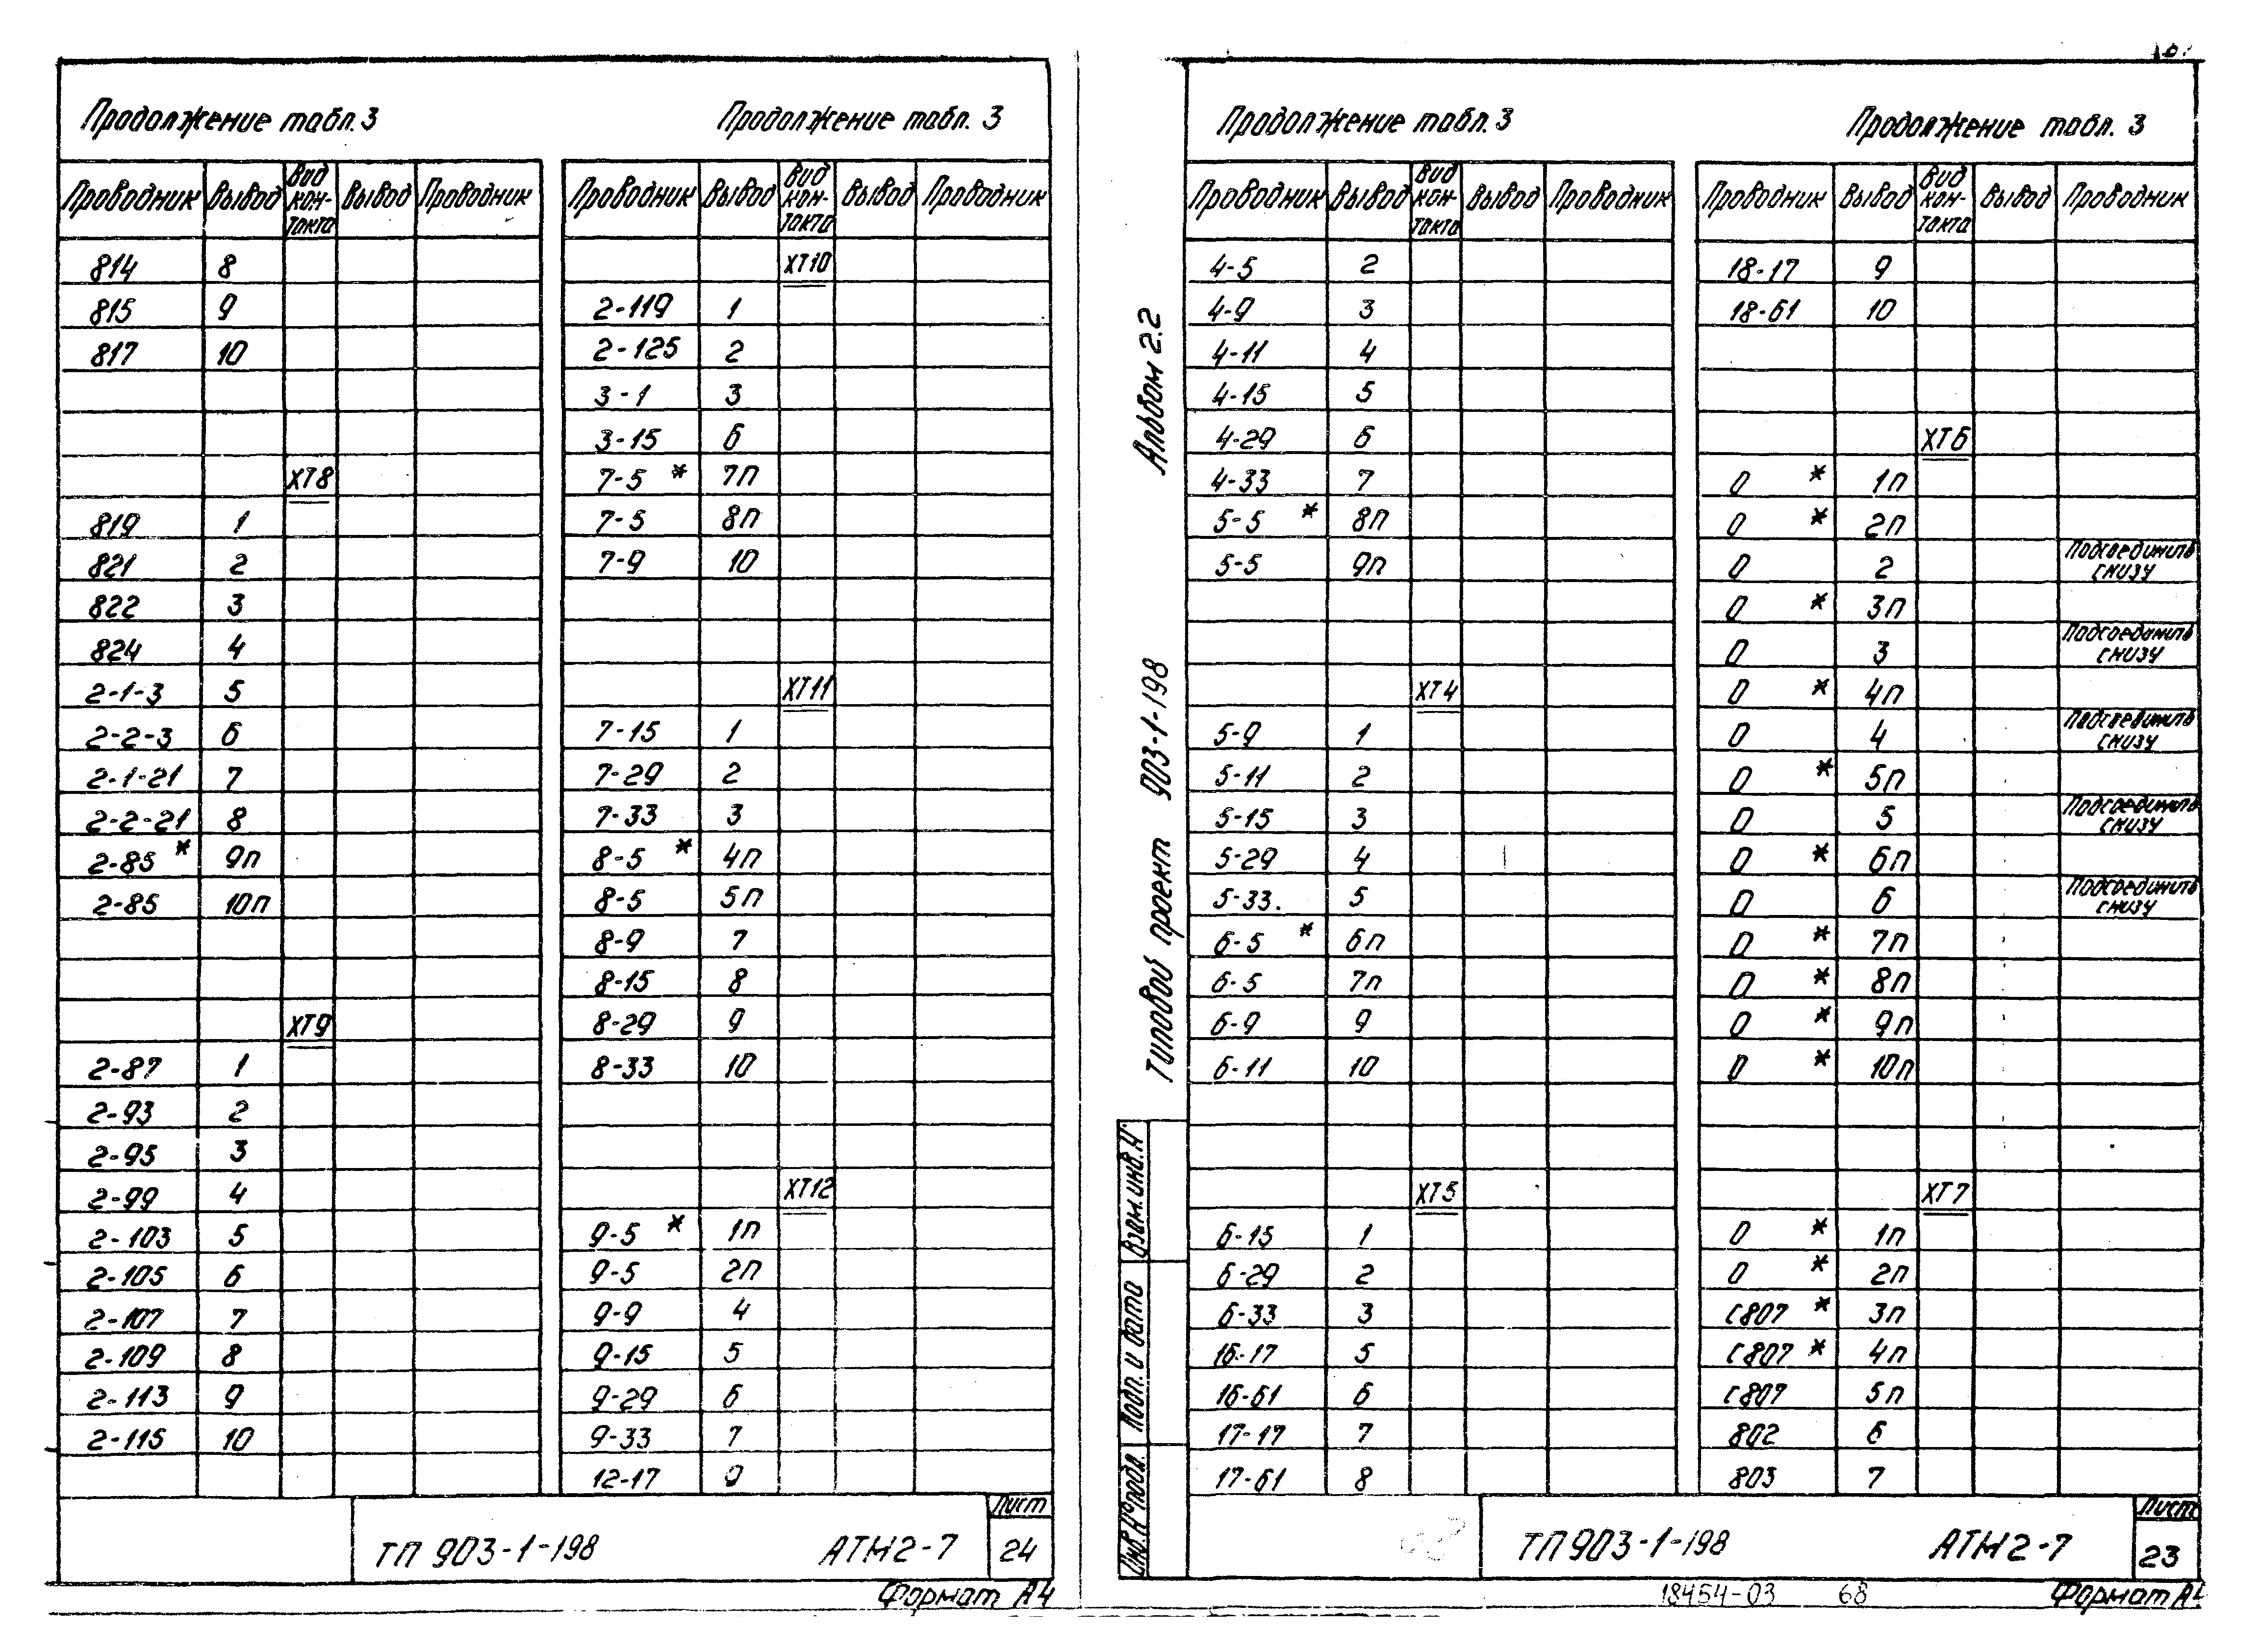 Продолжение табл. 3
Проводник Вывод Вид кон-такта Вывод Проводник
814 8
815 9
817 10
ХТ8
819 1
821 2
822 3
824 4
2-1-3 5
2-2-3 6
2-1-21 7
2-2-21 8
2-85 * 9п
2-85 10п
ХТ9
2-87 1
2-93 2
2-95 3
2-99 4
2-103 5
2-105 6
2-107 7
2-109 8
2-113 9
2-115 10
Продолжение табл. 3
Проводник Вывод Вид кон-такта Вывод Проводник
ХТ10
2-119 1
2-125 2
3-1 3
3-15 6
7-5 * 7п
7-5 8п
7-9 10
ХТ11
7-15 1
7-29 2
7-33 3
8-5 * 4п
8-5 5п
8-9 7
8-15 8
8-29 9
8-33 10
ХТ12
9-5 * 1п
9-5 2п
9-9 4
9-15 5
9-29 6
9-33 7
12-17 9
ТП 903-1-198 АТМ2-7
Лист
24
Формат А4
Альбом 2.2
Типовой проект 903-1-198
Взам. инв. №
Подп. и дата
Инв. № подл.
Продолжение табл. 3
Проводник Вывод Вид кон-такта Вывод Проводник
4-5 2
4-9 3
4-11 4
4-15 5
4-29 6
4-33 7
5-5 * 8п
5-5 9п
ХТ4
5-9 1
5-11 2
5-15 3
5-29 4
5-33. 5
6-5 * 6п
6-5 7п
6-9 9
6-11 10
ХТ5
6-15 1
6-29 2
6-33 3
16-17 5
16-61 6
17-17 7
17-61 8
Продолжение табл. 3
Проводник Вывод Вид кон-такта Вывод Проводник
18-17 9
18-61 10
ХТ6
0 * 1п
0 * 2п
0 2 Подсоединить снизу
0 * 3п
0 3 Подсоединить снизу
0 * 4п
0 4 Подсоединить снизу
0 * 5п
0 5 Подсоединить снизу
0 * 6п
0 6 Подсоединить снизу
0 * 7п
0 * 8п
0 * 9п
0 * 10п
ХТ7
0 * 1п
0 * 2п
С807 * 3п
С807 * 4п
С807 5п
802 6
803 7
ТП 903-1-198 АТМ2-7
Лист
23
18454-03 68
Формат А4